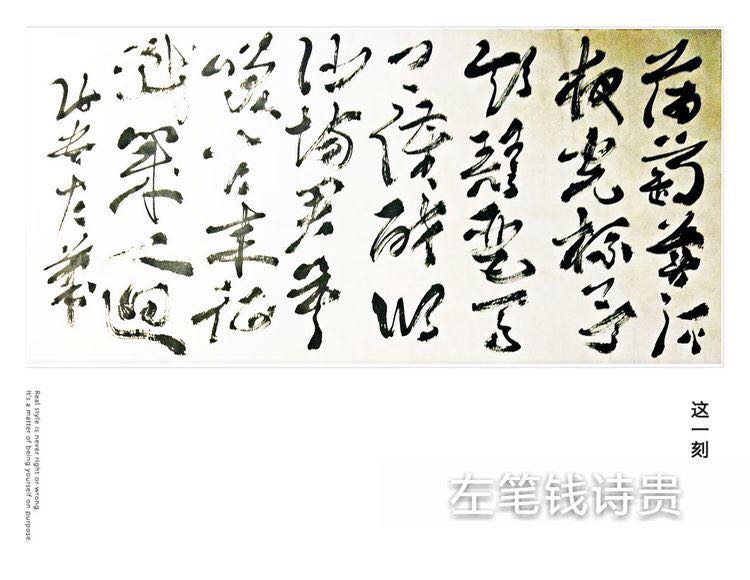 蒲萄美酒
夜光杯欲
飲琵琶馬
上催醉卧
沙場君莫
笑古来征
戰幾人迴
这一刻
左笔钱诗贵
Real style is never right or wrong.
It's a matter of being yourself on purpose.